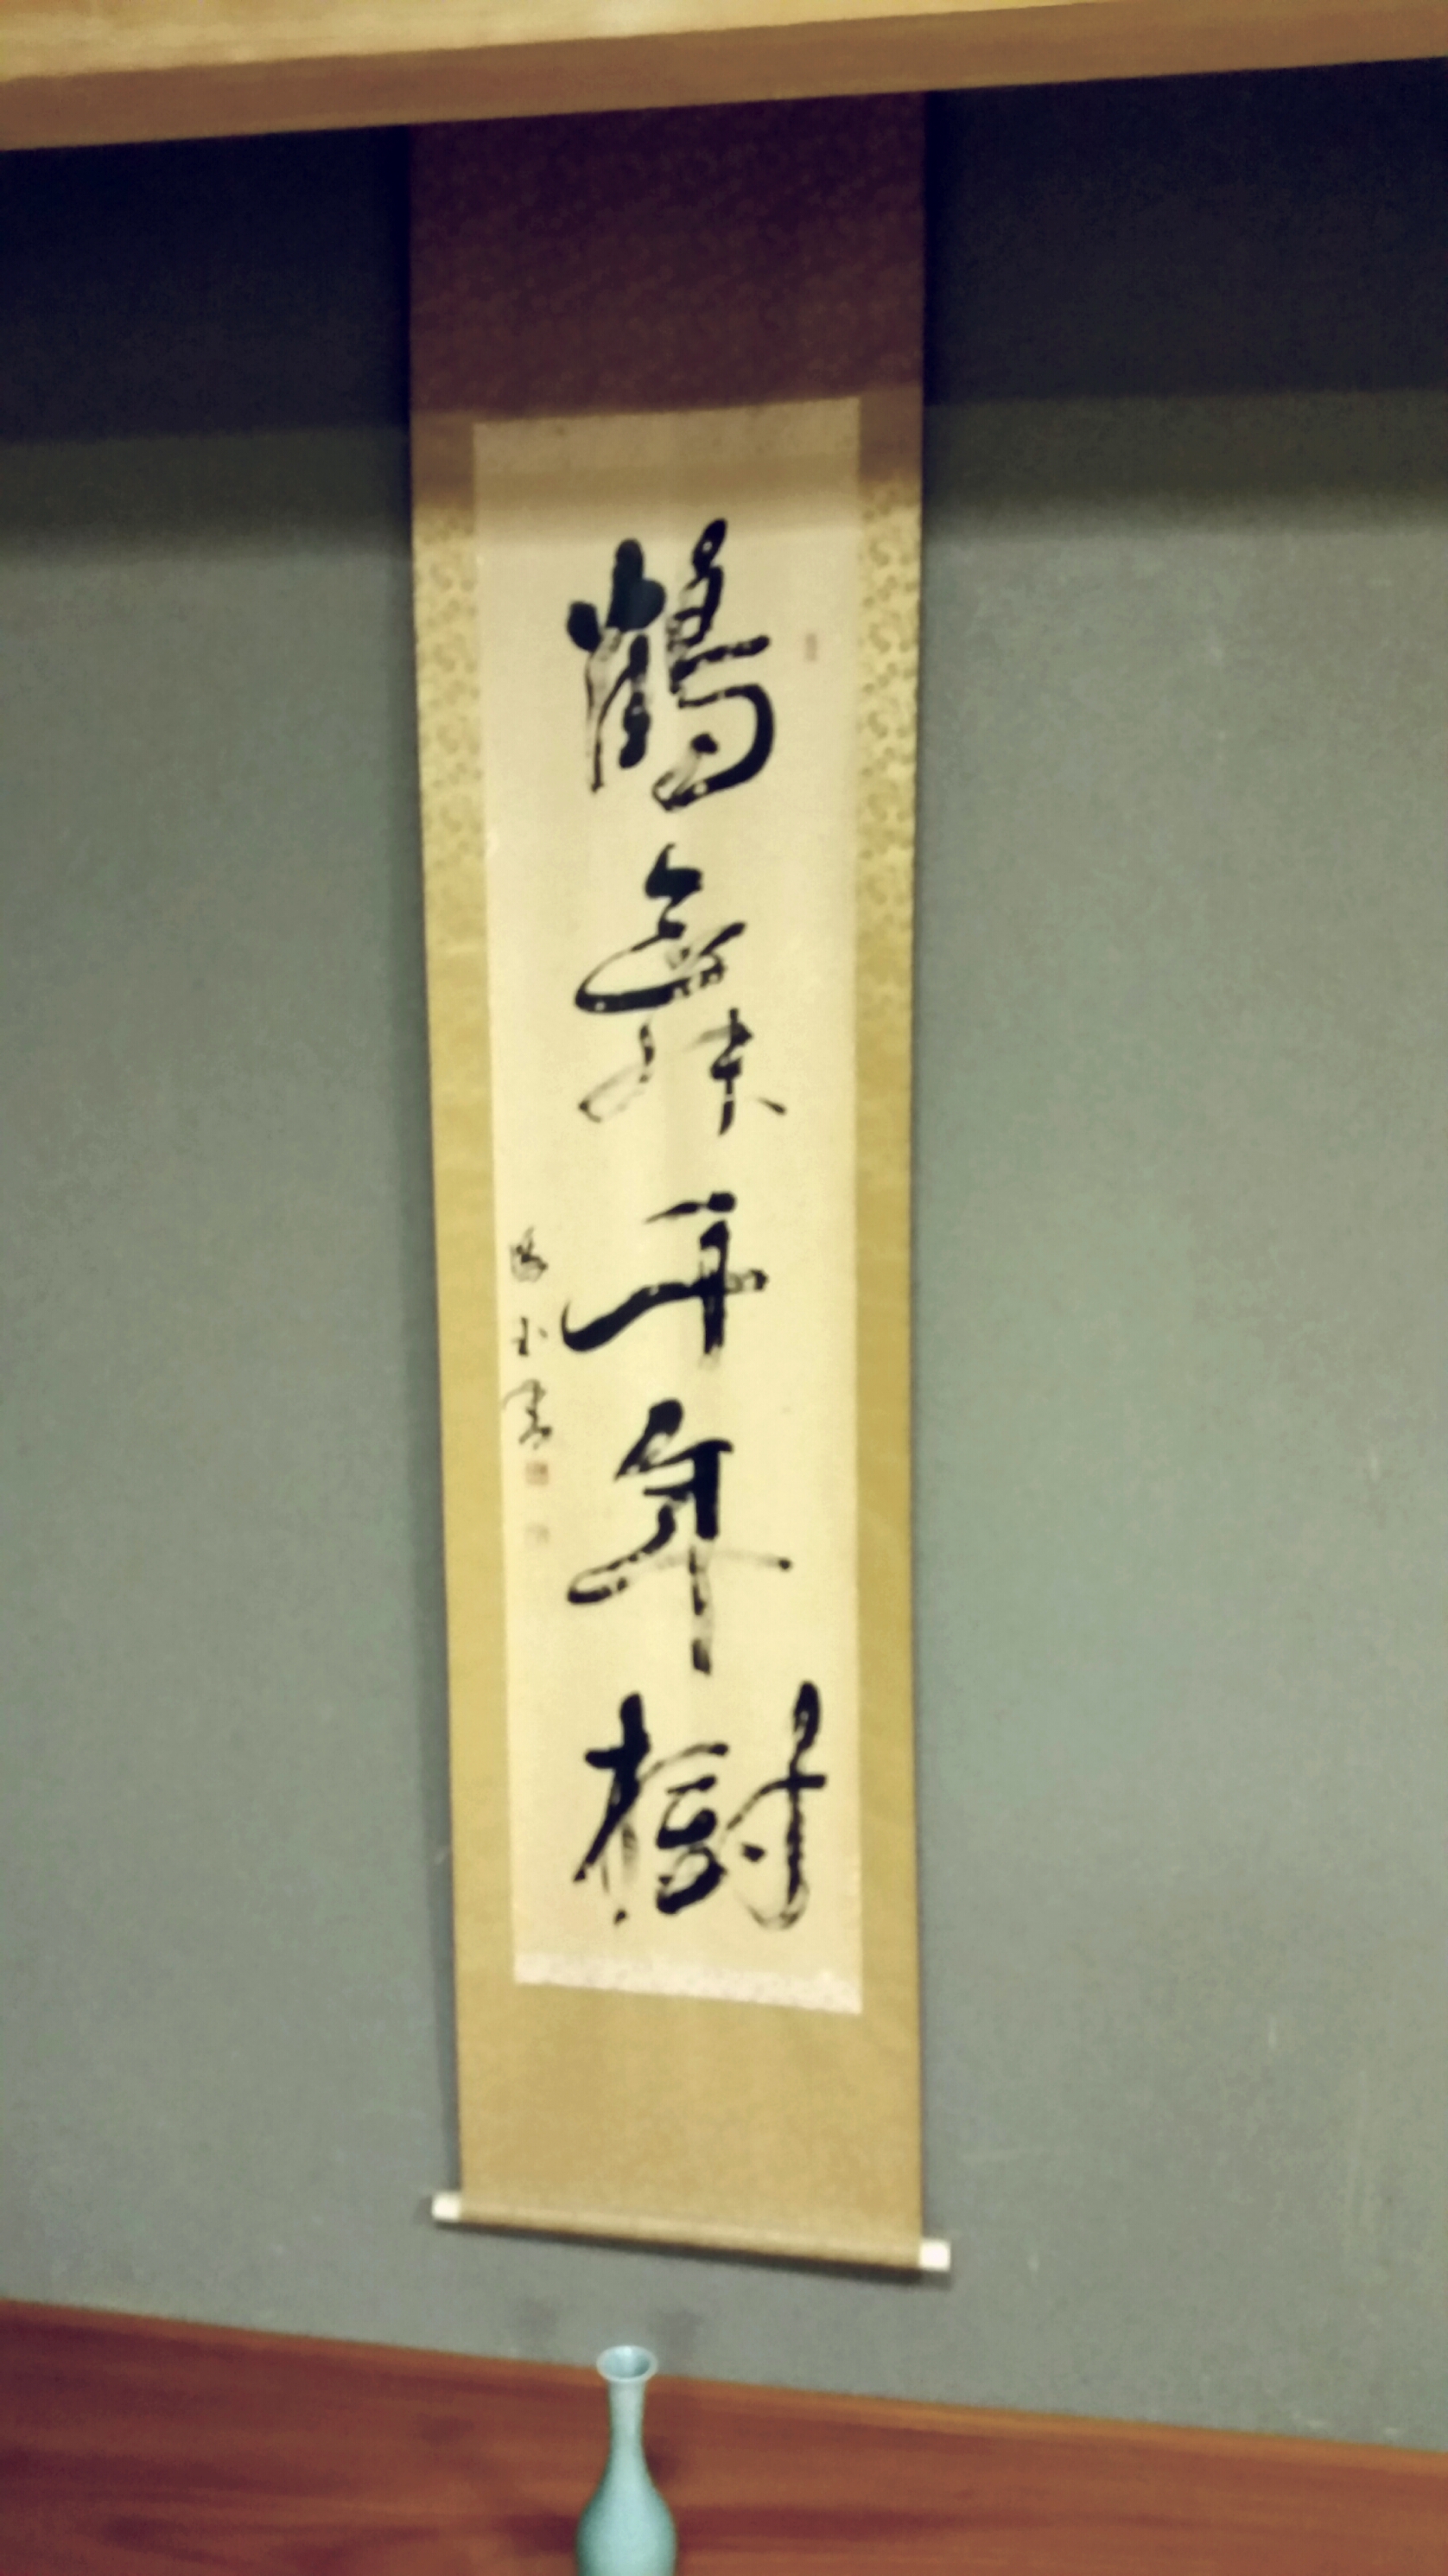 鶴舞千年樹